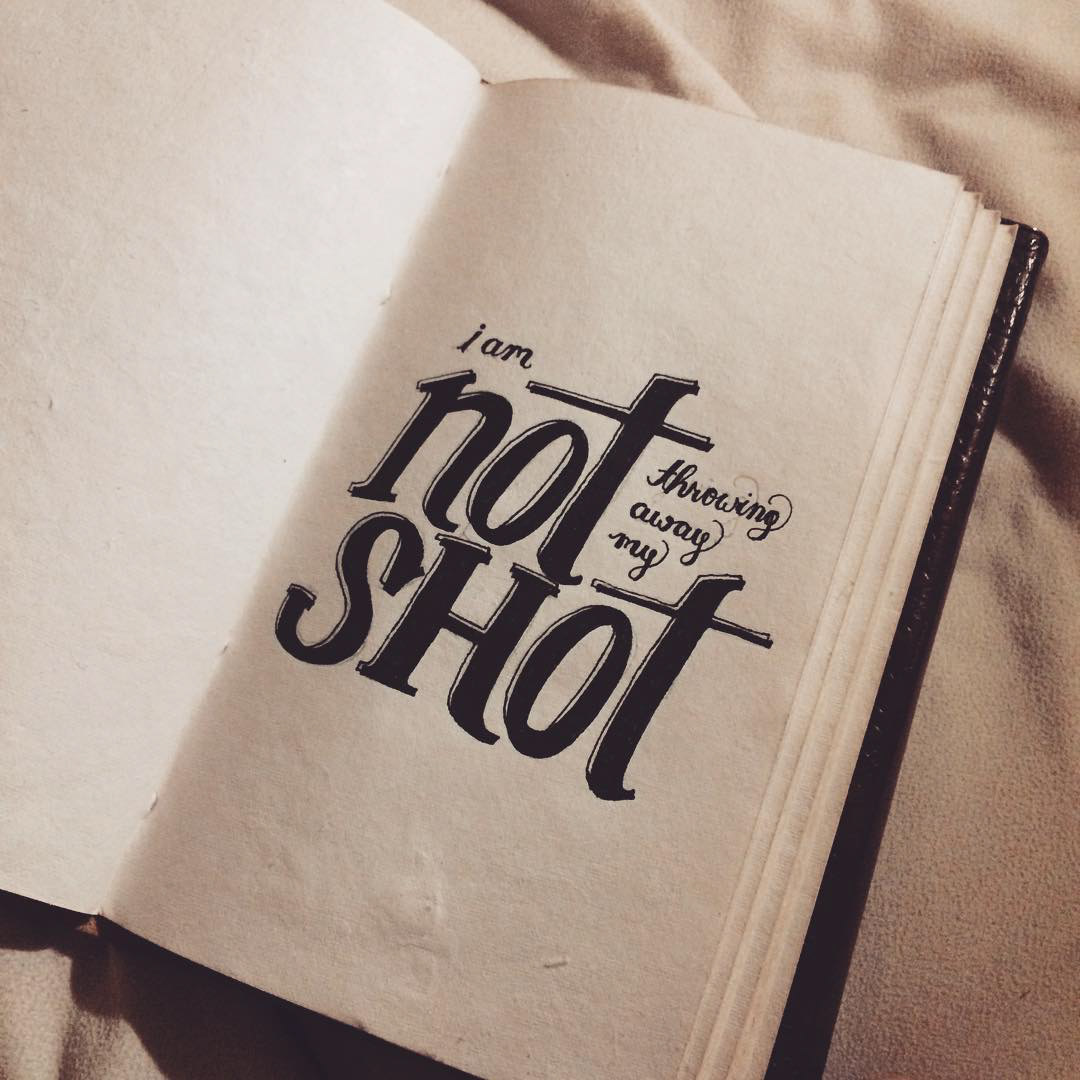 i am
not
throwing
away
my
SHOt